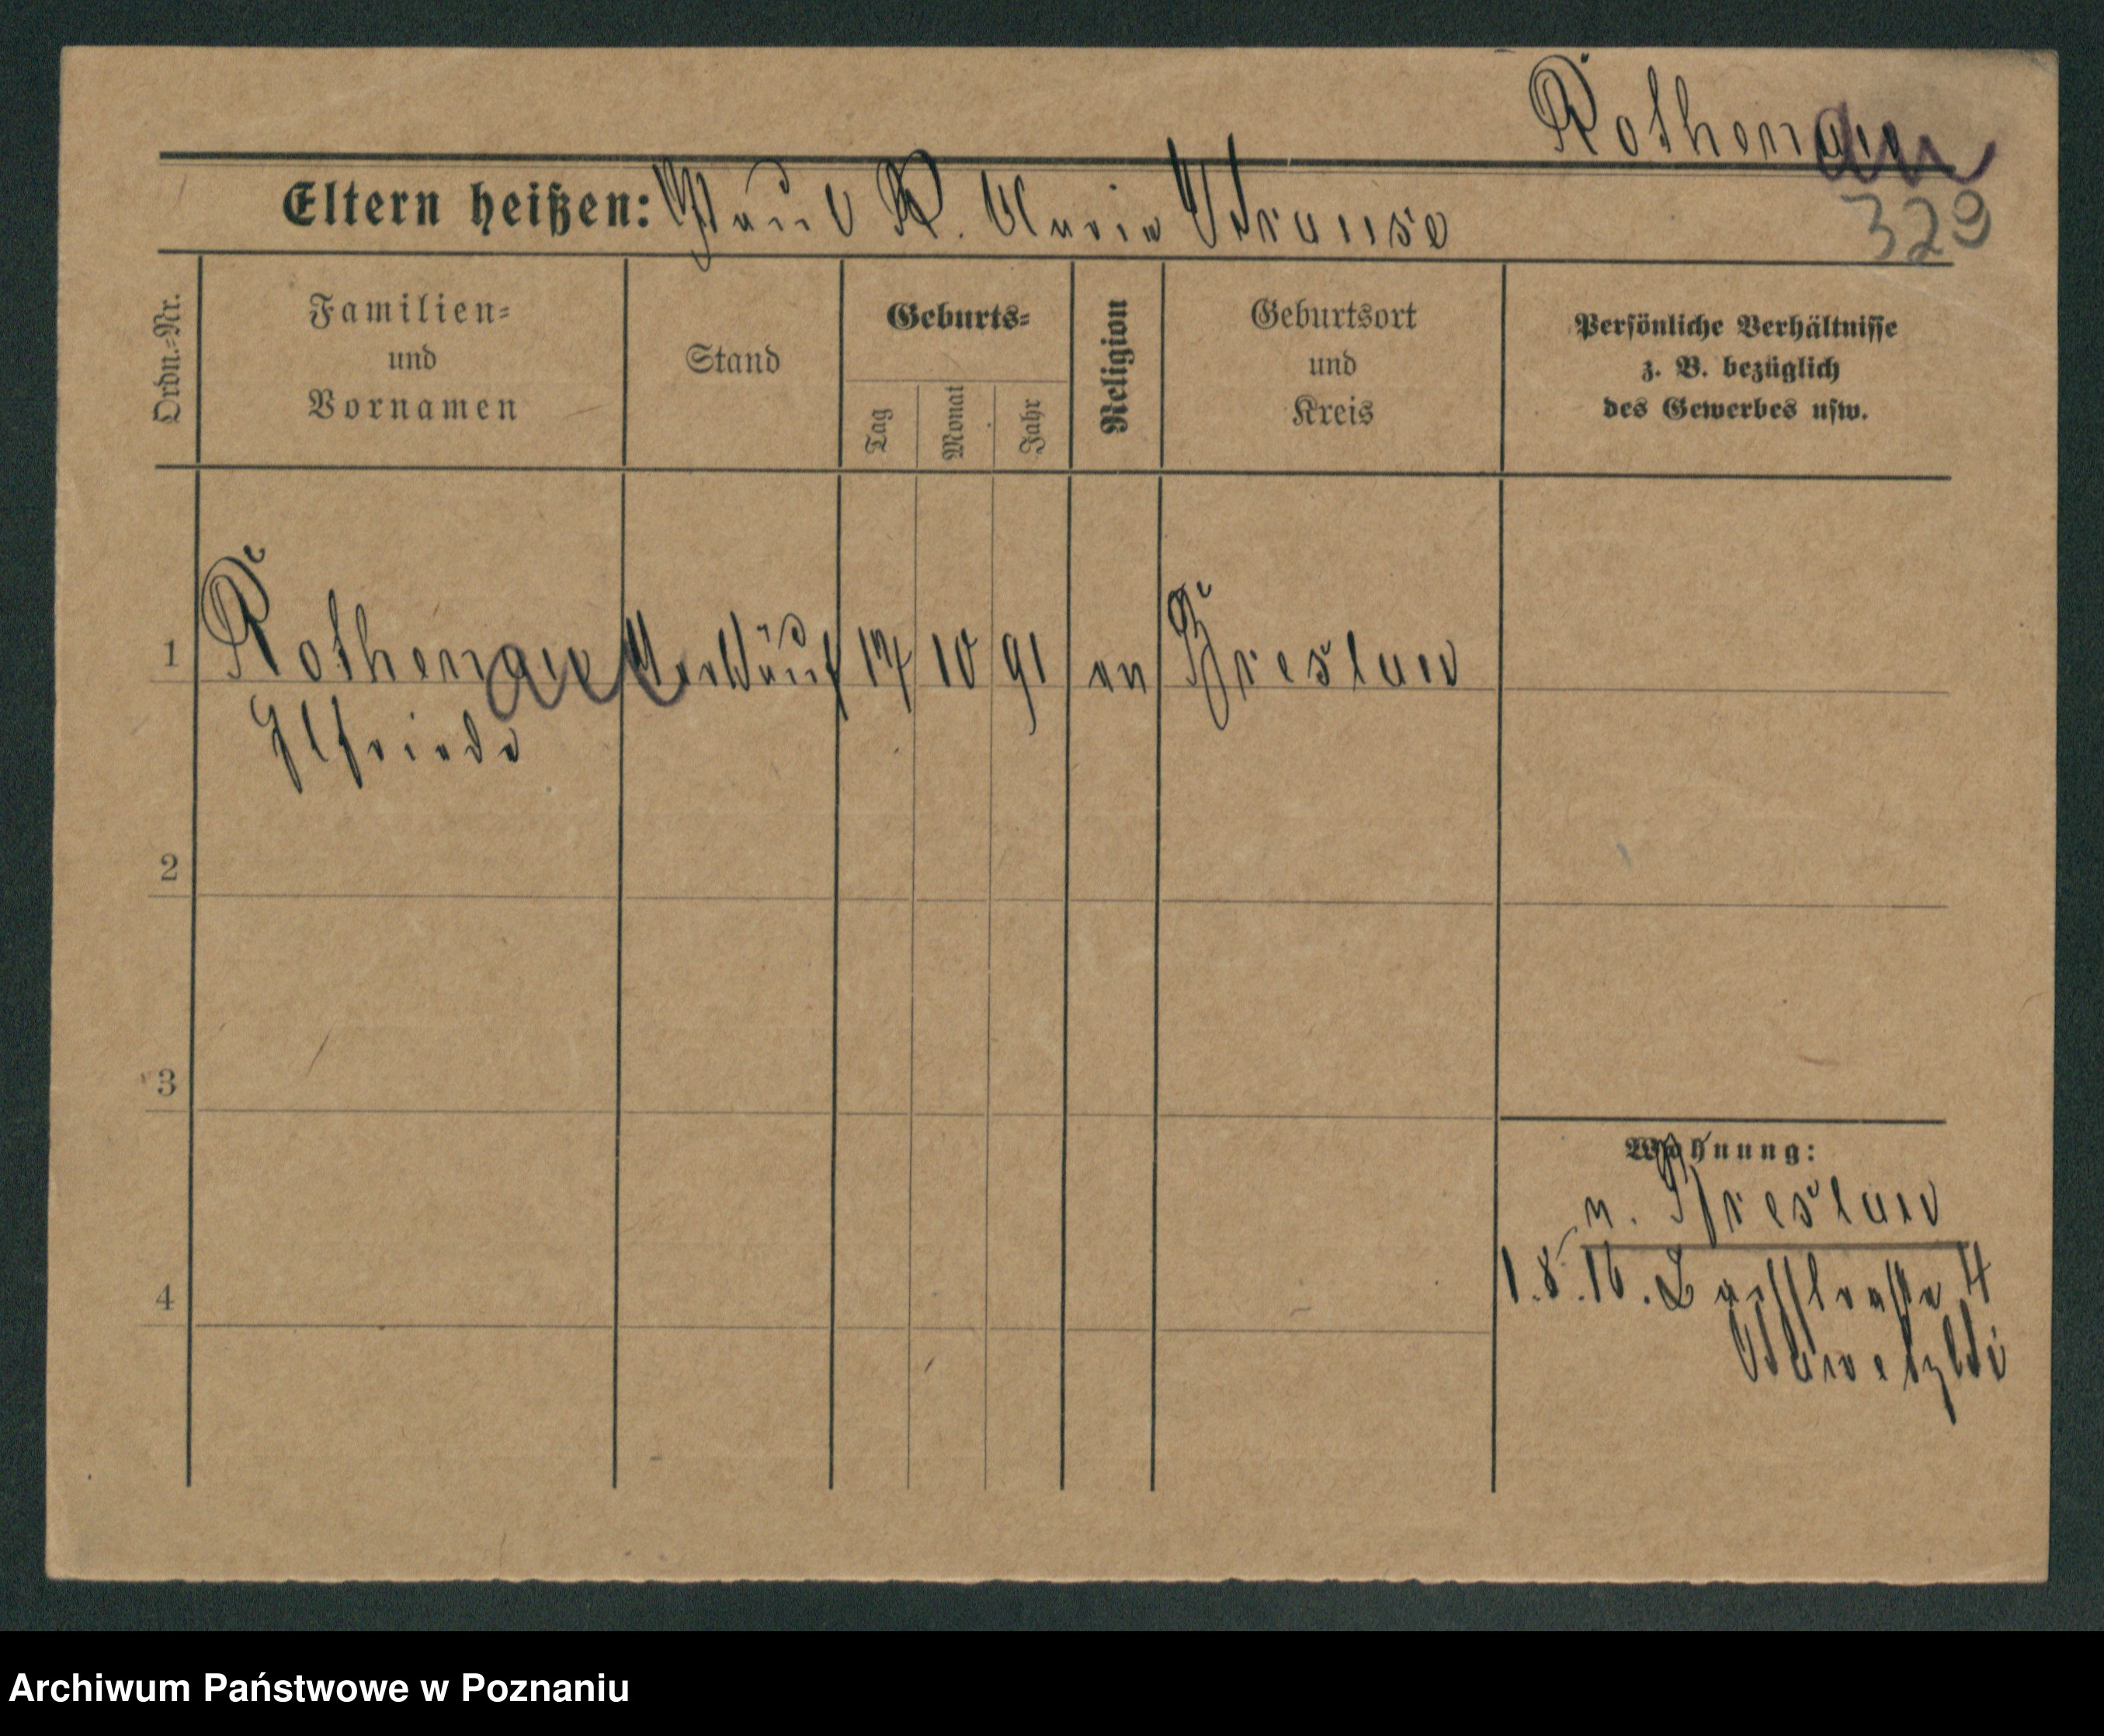 Rothenau
329
Eltern heißen: Paul R. Marie Krause
Ordn.-Nr.
Familien-
und
Vornamen
Stand
Geburts-
Tag
Monat
Jahr
Religion
Geburtsort
und
Kreis
Persönliche Verhältnisse
z. B. bezüglich
des Gewerbes usw.
1 Rothenau Verkäuf 17 10 91 ev Breslau
Elfriede
2
3
4
Wohnung:
n. Breslau
1.8.16.
Archiwum Państwowe w Poznaniu